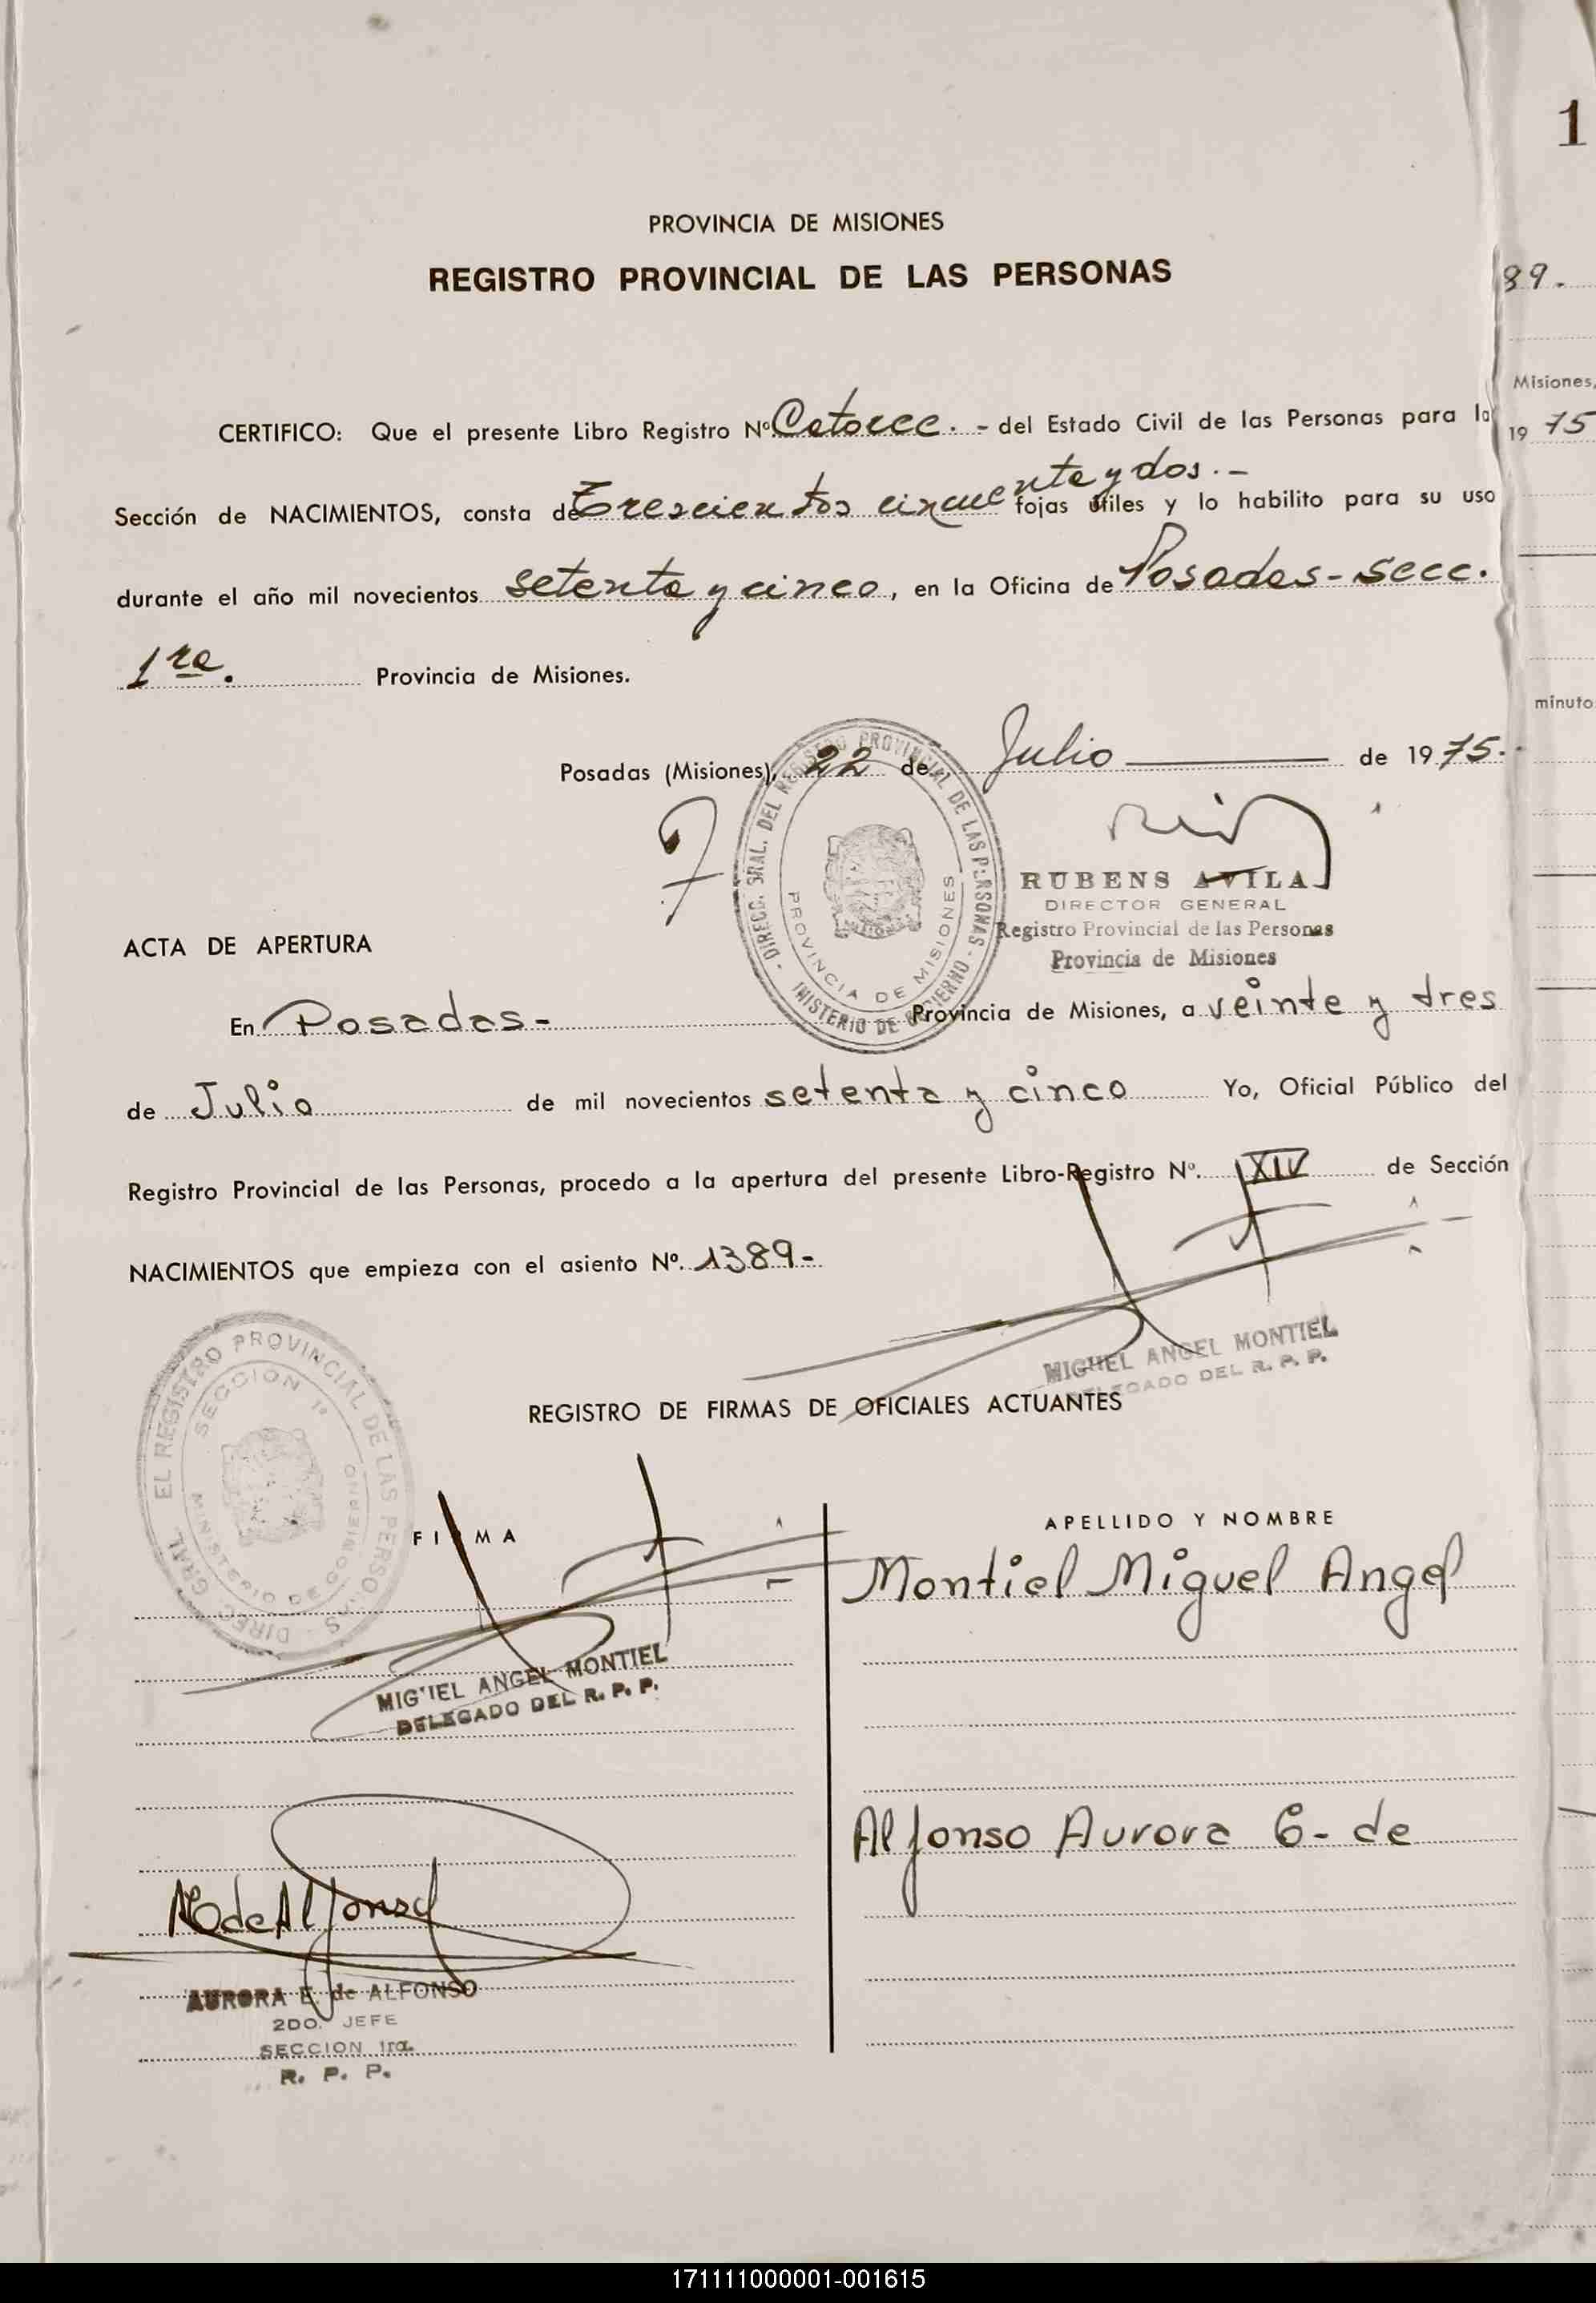 1
PROVINCIA DE MISIONES
REGISTRO PROVINCIAL DE LAS PERSONAS
89.
Misiones,
19 75
CERTIFICO: Que el presente Libro Registro Nº Catorce. - del Estado Civil de las Personas para la
Sección de NACIMIENTOS, consta de Trescientos cincuenta y dos.- fojas útiles y lo habilito para su uso
durante el año mil novecientos setenta y cinco, en la Oficina de Posadas - Secc.
1ra. Provincia de Misiones.
minuto
Posadas (Misiones), 22 de Julio de 1975.
DIRECC. GRAL. DEL REGISTRO PROVINCIAL DE LAS PERSONAS - MINISTERIO DE GOBIERNO -
PROVINCIA DE MISIONES
RUBENS AVILA
DIRECTOR GENERAL
Registro Provincial de las Personas
Provincia de Misiones
ACTA DE APERTURA
En Posadas- Provincia de Misiones, a veinte y tres
de Julio de mil novecientos setenta y cinco Yo, Oficial Público del
Registro Provincial de las Personas, procedo a la apertura del presente Libro-Registro Nº. XIV de Sección
NACIMIENTOS que empieza con el asiento Nº. 1389-
MIGUEL ANGEL MONTIEL
DELEGADO DEL R. P. P.
DIREC. GRAL. EL REGISTRO PROVINCIAL DE LAS PERSONAS
SECCION 1ª
MINISTERIO DE GOBIERNO
REGISTRO DE FIRMAS DE OFICIALES ACTUANTES
FIRMA
APELLIDO Y NOMBRE
Montiel Miguel Angel
MIGUEL ANGEL MONTIEL
DELEGADO DEL R. P. P.
Alfonso Aurora E- de
de Alfonso
AURORA E. de ALFONSO
2DO. JEFE
SECCION 1ra.
R. P. P.
171111000001-001615